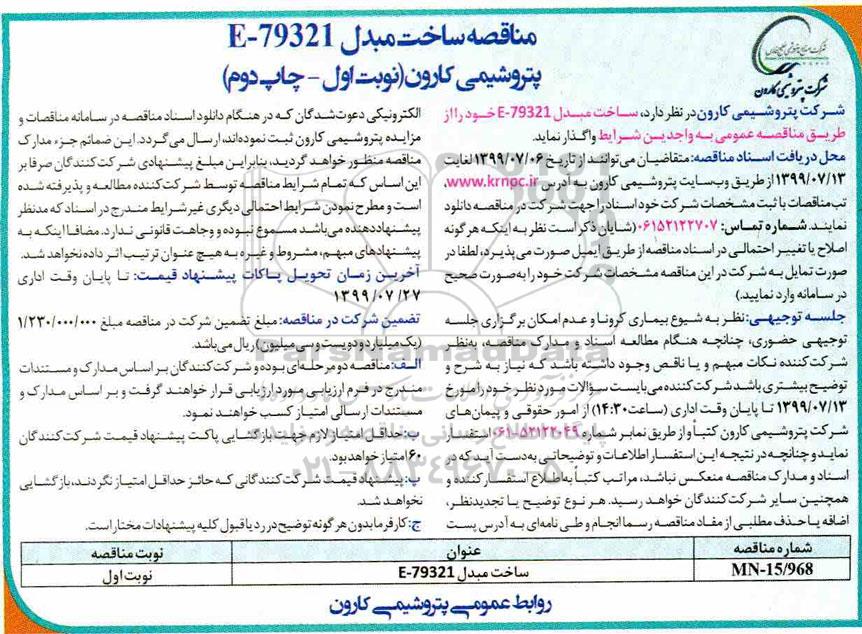 مناقصه ساخت مبدل E-79321
پتروشیمی کارون(نوبت اول - چاپ دوم)
شرکت پتروشیمی کارون
شرکت پتروشیمی کارون در نظر دارد، ساخت مبدل E-79321 خود را از
طریق مناقصه عمومی به واجدین شرایط واگذار نماید.
محل دریافت اسناد مناقصه: متقاضیان می‌توانند از تاریخ ۱۳۹۹/۰۷/۰۶ لغایت
۱۳۹۹/۰۷/۱۳ از طریق وب‌سایت پتروشیمی کارون به آدرس www.krnpc.ir،
تب مناقصات با ثبت مشخصات شرکت خود اسناد را جهت شرکت در مناقصه دانلود
نمایند. شماره تماس: ۰۶۱۵۲۱۲۲۷۰۷ (شایان ذکر است نظر به اینکه هرگونه
اصلاح یا تغییر احتمالی در اسناد مناقصه از طریق ایمیل صورت می‌پذیرد، لطفا در
صورت تمایل به شرکت در این مناقصه مشخصات شرکت خود را به‌صورت صحیح
در سامانه وارد نمایید.)
جلسه توجیهی: نظر به شیوع بیماری کرونا و عدم امکان برگزاری جلسه
توجیهی حضوری، چنانچه هنگام مطالعه اسناد و مدارک مناقصه، به‌نظر
شرکت‌کننده نکات مبهم و یا ناقص وجود داشته باشد که نیاز به شرح و
توضیح بیشتری باشد شرکت‌کننده می‌بایست سؤالات مورد نظر خود را مورخ
۱۳۹۹/۰۷/۱۳ تا پایان وقت اداری (ساعت ۱۴:۳۰) از امور حقوقی و پیمان‌های
شرکت پتروشیمی کارون کتباً و از طریق نمابر شماره ۰۶۱-۵۲۱۲۲۰۴۹ استفسار
نماید و چنانچه در نتیجه این استفسار اطلاعات و توضیحاتی به‌دست آید که در
اسناد و مدارک مناقصه منعکس نباشد، مراتب کتباً به اطلاع استفسارکننده و
همچنین سایر شرکت‌کنندگان خواهد رسید. هر نوع توضیح یا تجدیدنظر،
اضافه یا حذف مطلبی از مفاد مناقصه رسما انجام و طی نامه‌ای به آدرس پست
الکترونیکی دعوت‌شدگان که در هنگام دانلود اسناد مناقصه در سامانه مناقصات و
مزایده پتروشیمی کارون ثبت نموده‌اند، ارسال می‌گردد. این ضمائم جزء مدارک
مناقصه منظور خواهد گردید، بنابراین مبلغ پیشنهادی شرکت‌کنندگان صرفا بر
این اساس که تمام شرایط مناقصه توسط شرکت‌کننده مطالعه و پذیرفته شده
است و مطرح نمودن شرایط احتمالی دیگری غیر شرایط مندرج در اسناد که مدنظر
پیشنهاددهنده می‌باشد مسموع نبوده و وجاهت قانونی ندارد. مضافا اینکه به
پیشنهادهای مبهم، مشروط و غیره به هیچ عنوان ترتیب اثر داده نخواهد شد.
آخرین زمان تحویل پاکات پیشنهاد قیمت: تا پایان وقت اداری
۱۳۹۹/۰۷/۲۷
تضمین شرکت در مناقصه: مبلغ تضمین شرکت در مناقصه مبلغ ۱/۲۳۰/۰۰۰/۰۰۰
(یک میلیارد و دویست و سی میلیون) ریال می‌باشد.
الف: مناقصه دو مرحله‌ای بوده و شرکت‌کنندگان بر اساس مدارک و مستندات
مندرج در فرم ارزیابی مورد ارزیابی قرار خواهند گرفت و بر اساس مدارک و
مستندات ارسالی امتیاز کسب خواهند نمود.
ب: حداقل امتیاز لازم جهت بازگشایی پاکت پیشنهاد قیمت شرکت‌کنندگان
۶۰ امتیاز خواهد بود.
پ: پیشنهاد قیمت شرکت‌کنندگانی که حائز حداقل امتیاز نگردند، بازگشایی
نخواهد شد.
ج: کارفرما بدون هرگونه توضیح در رد یا قبول کلیه پیشنهادات مختار است.
شماره مناقصه عنوان نوبت مناقصه
MN-15/968 ساخت مبدل E-79321 نوبت اول
روابط عمومی پتروشیمی کارون
ParsNamadData
۰۲۱-۸۸۳۴۹۶۷۰-۵